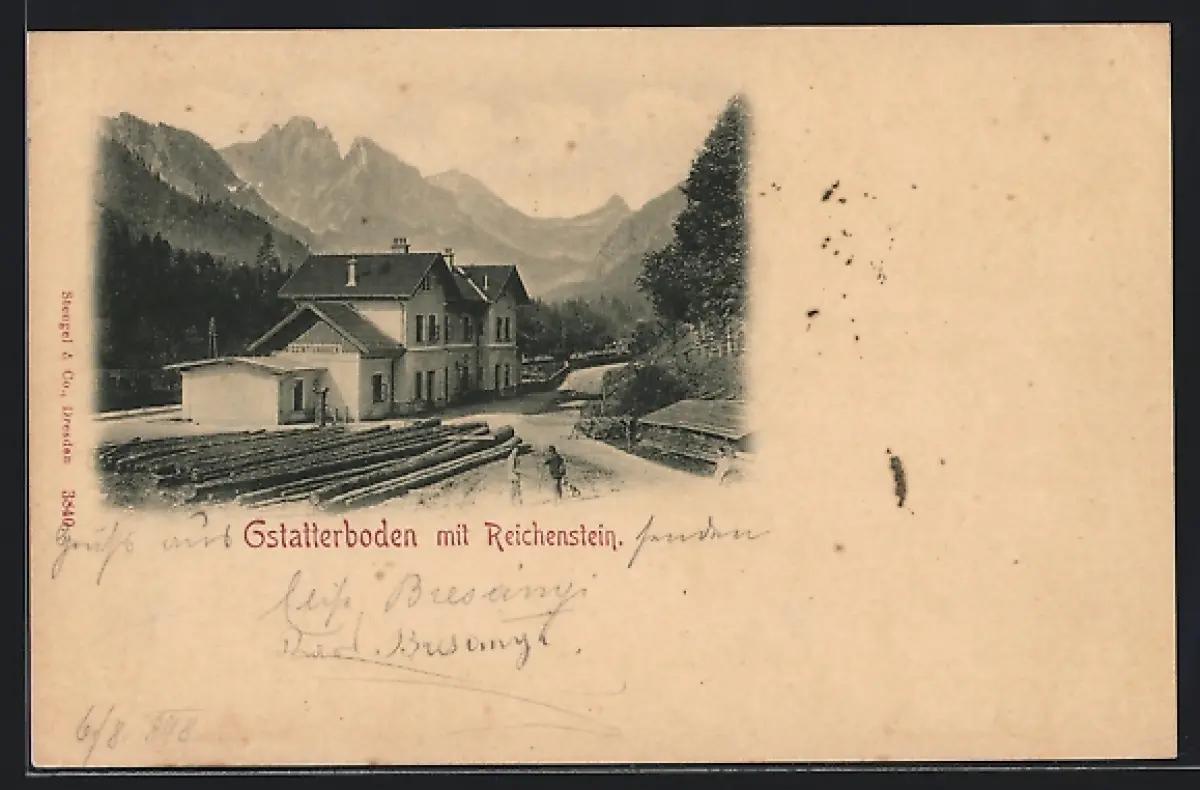 Stengel & Co., Dresden 3840
Gruß aus Gstatterboden mit Reichenstein. senden
Bresányi
Bresanyi.
6/8